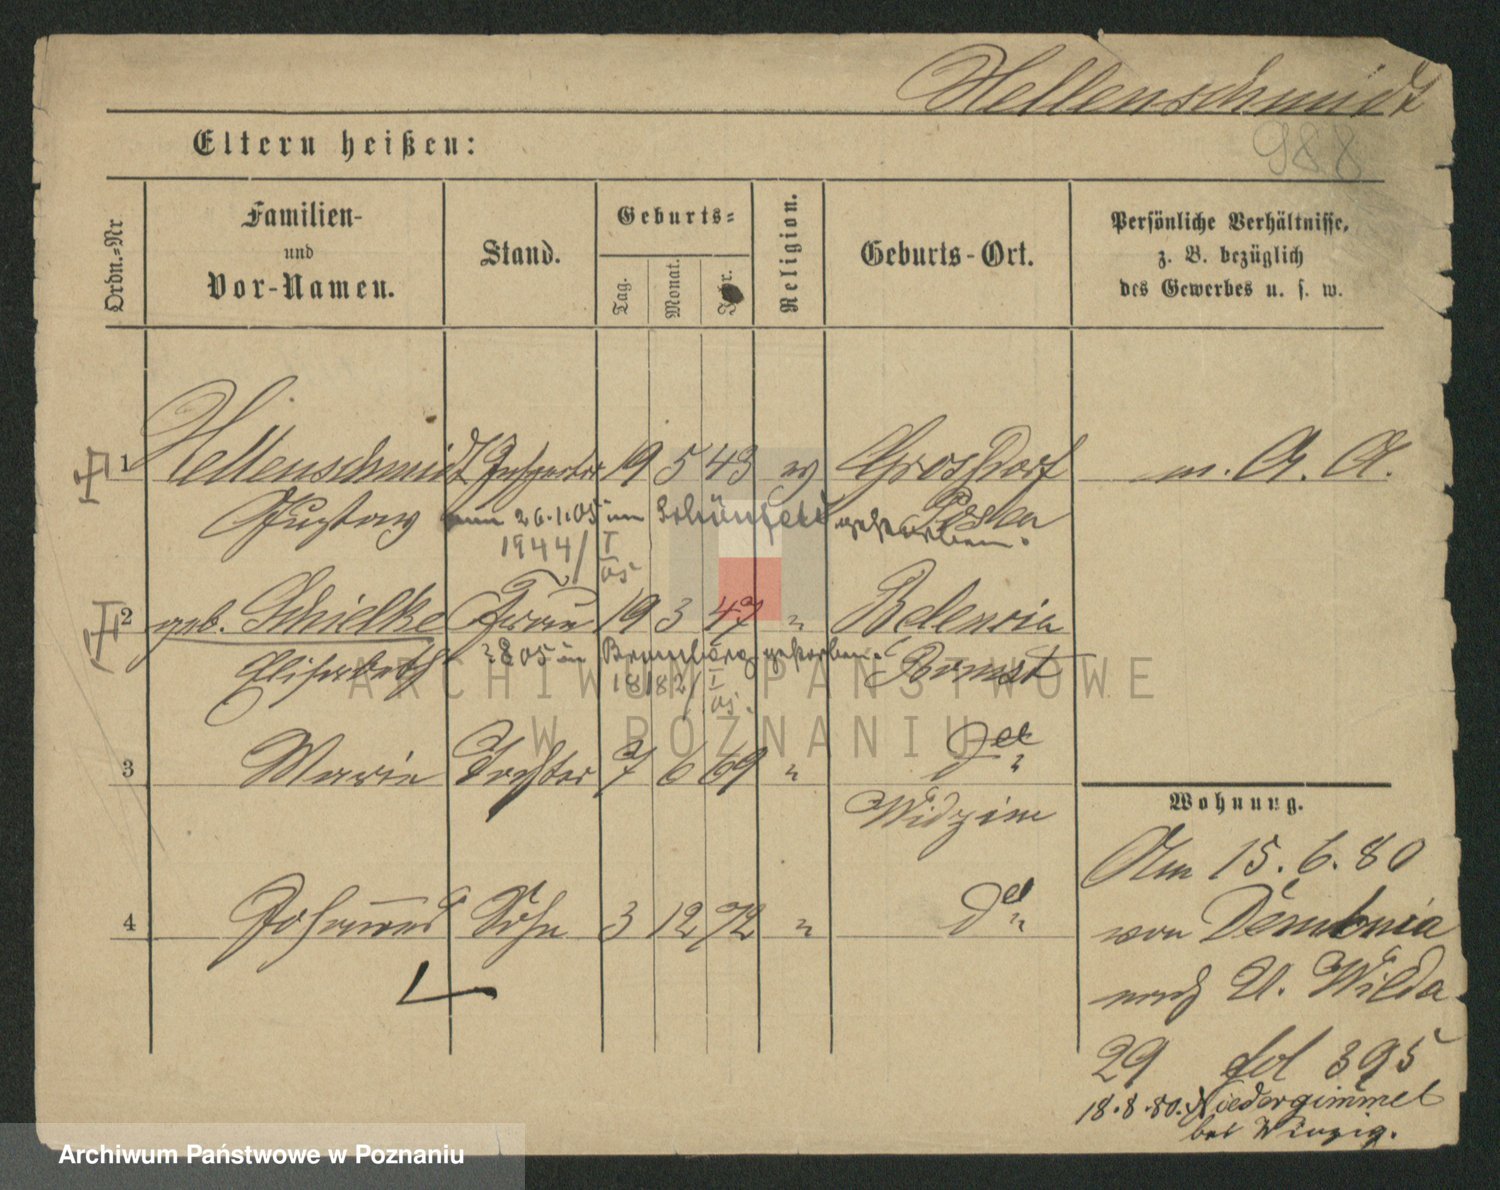 Hellenschmidt
988
Eltern heißen:
Ordn.=Nr
Familien-
und
Vor-Namen.
Stand.
Geburts=
Tag.
Monat.
Religion.
Geburts-Ort.
Persönliche Verhältnisse,
z. B. bezüglich
des Gewerbes u. s. w.
1 Hellenschmidt Inspector 19 5 43 ev Grosdorf m. A. A.
Gustav Posen
am 26.1.05 in Schönfeld gestorben.
1944/I
05
2 geb. Schielke Frau 19 3 47 " Belencin
Elisabeth Bomst
05 in Bromberg gestorben.
1818 2/I
05.
3 Marie Tochter 7 6 69 " d
Widzim
Wohnung.
Am 15.6.80
von Dembnia
nach U. Wilda
29 fol 395
18.8.80. Niedergimmel
bei Winzig.
4 Johannes Sohn 3 12 72 " d
ARCHIWUM PAŃSTWOWE
W POZNANIU
Archiwum Państwowe w Poznaniu